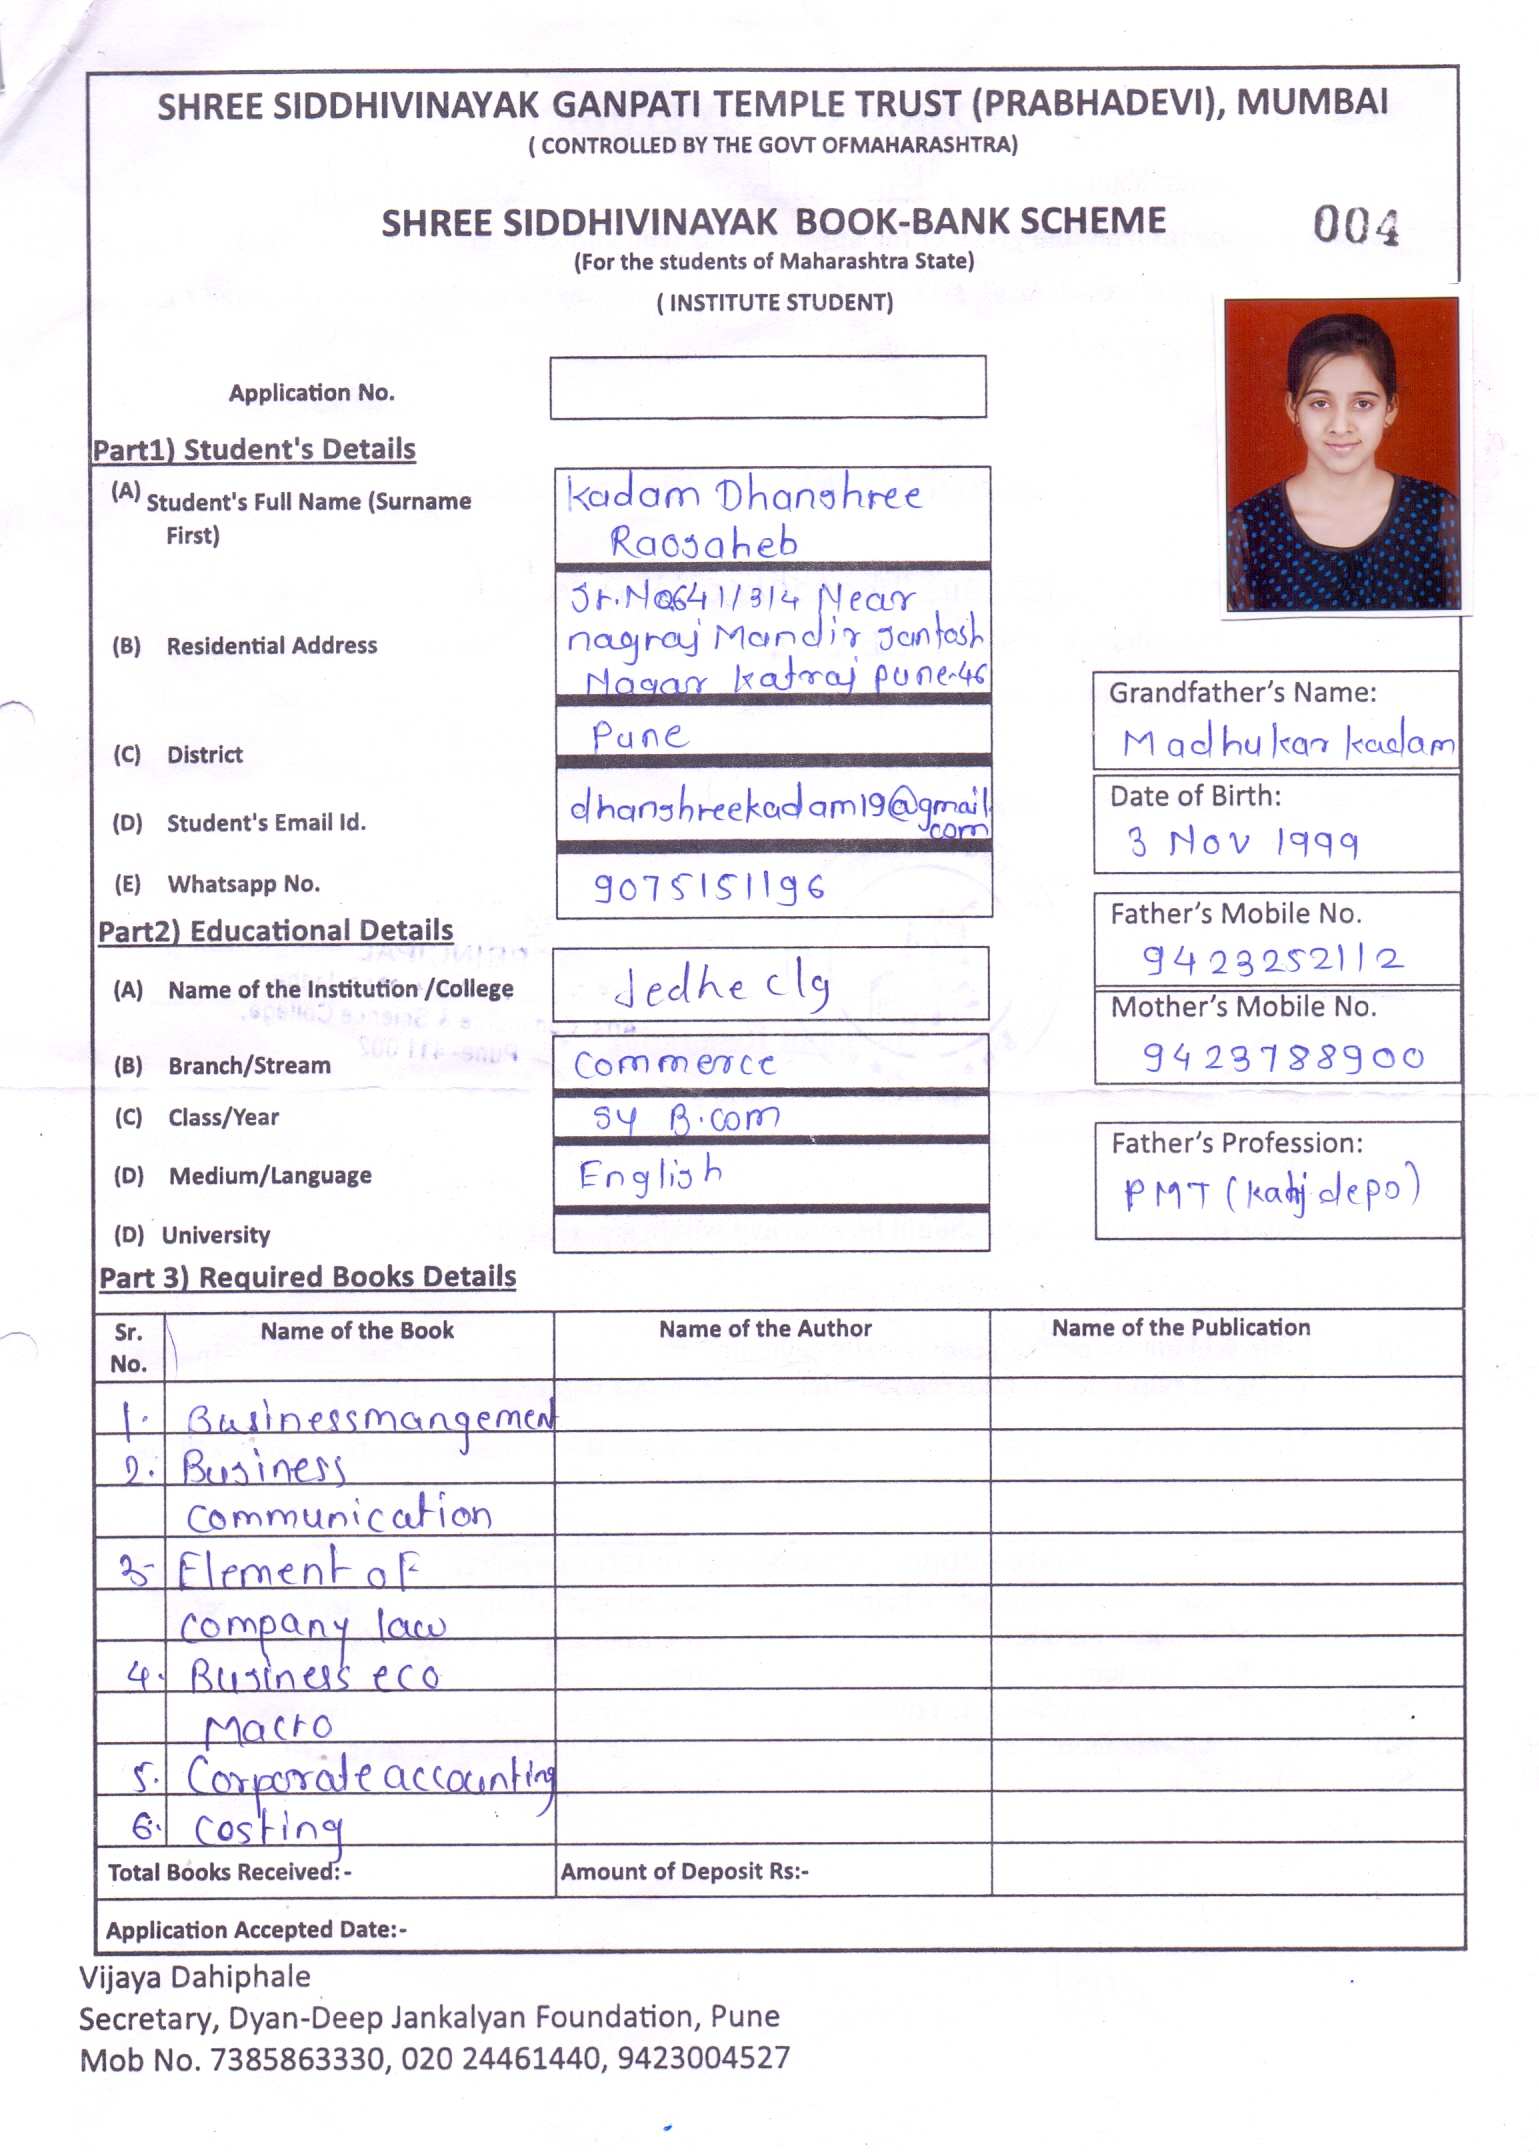 SHREE SIDDHIVINAYAK GANPATI TEMPLE TRUST (PRABHADEVI), MUMBAI
( CONTROLLED BY THE GOVT OFMAHARASHTRA)
SHREE SIDDHIVINAYAK BOOK-BANK SCHEME 004
(For the students of Maharashtra State)
( INSTITUTE STUDENT)
Application No.
Part1) Student's Details
(A) Student's Full Name (Surname First)
Kadam Dhanshree
Raosaheb
(B) Residential Address
Sr.No641/3/4 Near
nagraj Mandir santosh
Nagar katraj pune-46
(C) District
Pune
(D) Student's Email Id.
dhanshreekadam19@gmail
com
(E) Whatsapp No.
9075151196
Grandfather's Name:
Madhukar kadam
Date of Birth:
3 Nov 1999
Father's Mobile No.
9423252112
Mother's Mobile No.
9423788900
Father's Profession:
PMT ( depo)
Part2) Educational Details
(A) Name of the Institution /College
Jedhe clg
(B) Branch/Stream
Commerce
(C) Class/Year
SY B.com
(D) Medium/Language
English
(D) University
Part 3) Required Books Details
Sr. No. Name of the Book Name of the Author Name of the Publication
1. Businessmangement
2. Business
communication
3- Element of
company law
4. Business eco
Macro
5. Corporate accounting
6. Costing
Total Books Received:- Amount of Deposit Rs:-
Application Accepted Date:-
Vijaya Dahiphale
Secretary, Dyan-Deep Jankalyan Foundation, Pune
Mob No. 7385863330, 020 24461440, 9423004527